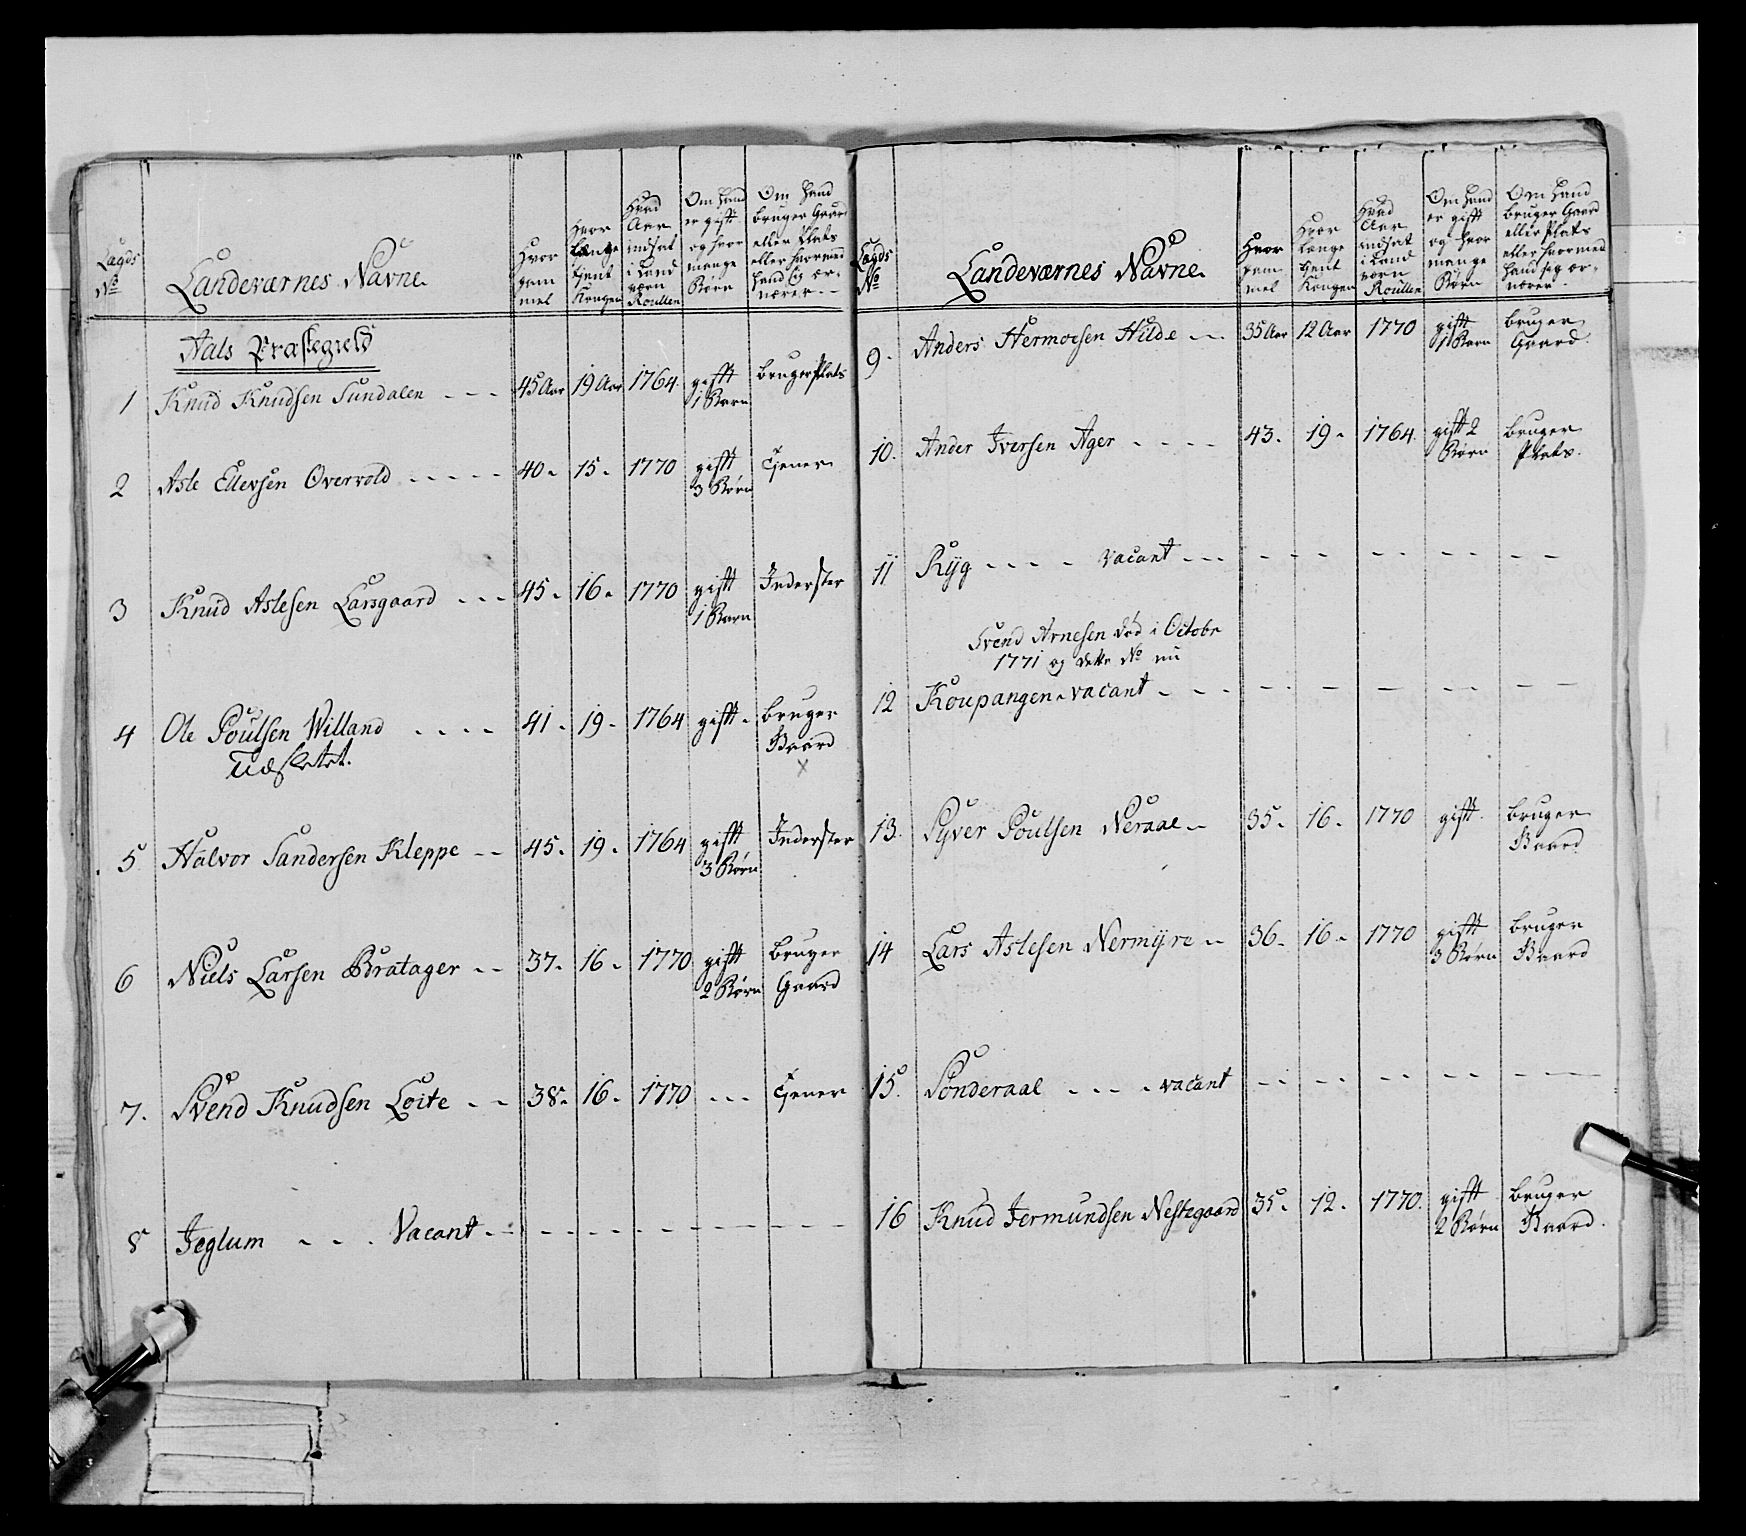 Lægds No
Landeværnes Navne
Hvor gammel
Hvor længe tient Kongen
Hvad Aar indsat i Landværn Roullen
Om hand er gift og hvor mange Børn
Om hand bruger Gaard eller Plats eller hvormed hand sig ernærer
Aals Præstegield
1 Knud Knudsen Sundalen - - - 45 Aar 19 Aar 1764. gifft 1 Barn bruger Plats
2 Asle Ellevsen Overvold - - - - - 40 - 15 - 1770 gifft 3 Børn Tjener
3 Knud Aslesen Larsgaard - - - 45 - 16 - 1770 gifft 1 Barn Inderster
4 Ole Poulsen Villand - - - - 41 - 19 - 1764 gifft - bruger Gaard
Udsletet. x
5 Halvor Sandersen Kleppe - - 45 - 19 - 1764 gifft 3 Børn Inderster
6 Niels Larsen Bratager - - 37 - 16 - 1770 gifft 2 Børn bruger Gaard
7. Svend Knudsen Loite - - 38 - 16 - 1770 - - - Tjener
8 Jeglum - - - Vacant - - - - - - - -
Lægds No
Landeværnes Navne
Hvor gammel
Hvor længe tient Kongen
Hvad Aar indsat i Landværn Roullen
Om hand er gifft og hvor mange Børn
Om hand bruger Gaard eller Plats eller hvormed hand sig ernærer
9. Anders Hermoesen Hilde - - 35 Aar 12 Aar 1770 gifft 1 Barn bruger Gaard.
10. Ander Iversen Ager - - - - 43 - 19 - 1764. gifft 2 Børn bruger Plats.
11 Ryg - - - - vacant - - - - - - - - - - - -
Svend Arnesen død i Octobr
1771 og dette No nu
12 Koupangen - vacant - - - - - - - - - - -
13. Syver Poulsen Neraal - 35 - 16 - 1770 gifft bruger Gaard
14 Lars Aslesen Nermyre - 36 - 16 - 1770 gifft 3 Børn bruger Gaard
15. Sonderaal - - - - vacant - - - - - - - - - -
16 Knud Jermundsen Nestegaard 35 - 12 - 1770. gifft 2 Børn bruger Gaard.